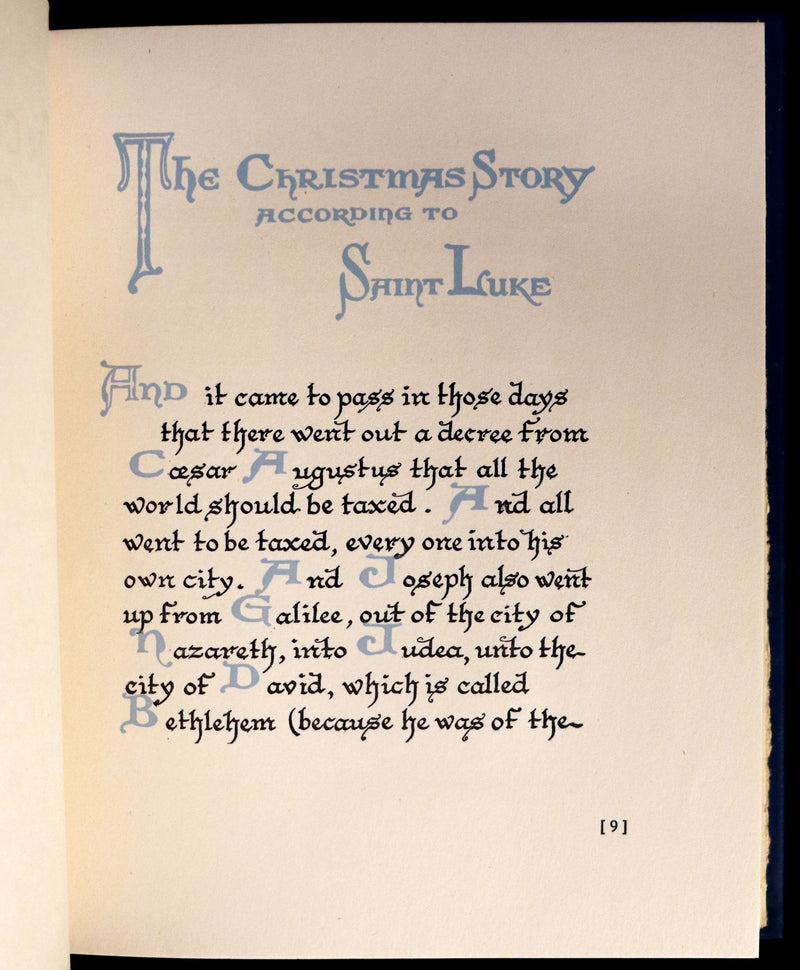 The Christmas Story
according to
Saint Luke
And it came to pass in those days
that there went out a decree from
Cæsar Augustus that all the
world should be taxed. And all
went to be taxed, every one into his
own city. And Joseph also went
up from Galilee, out of the city of
Nazareth, into Judea, unto the
city of David, which is called
Bethlehem (because he was of the
[9]